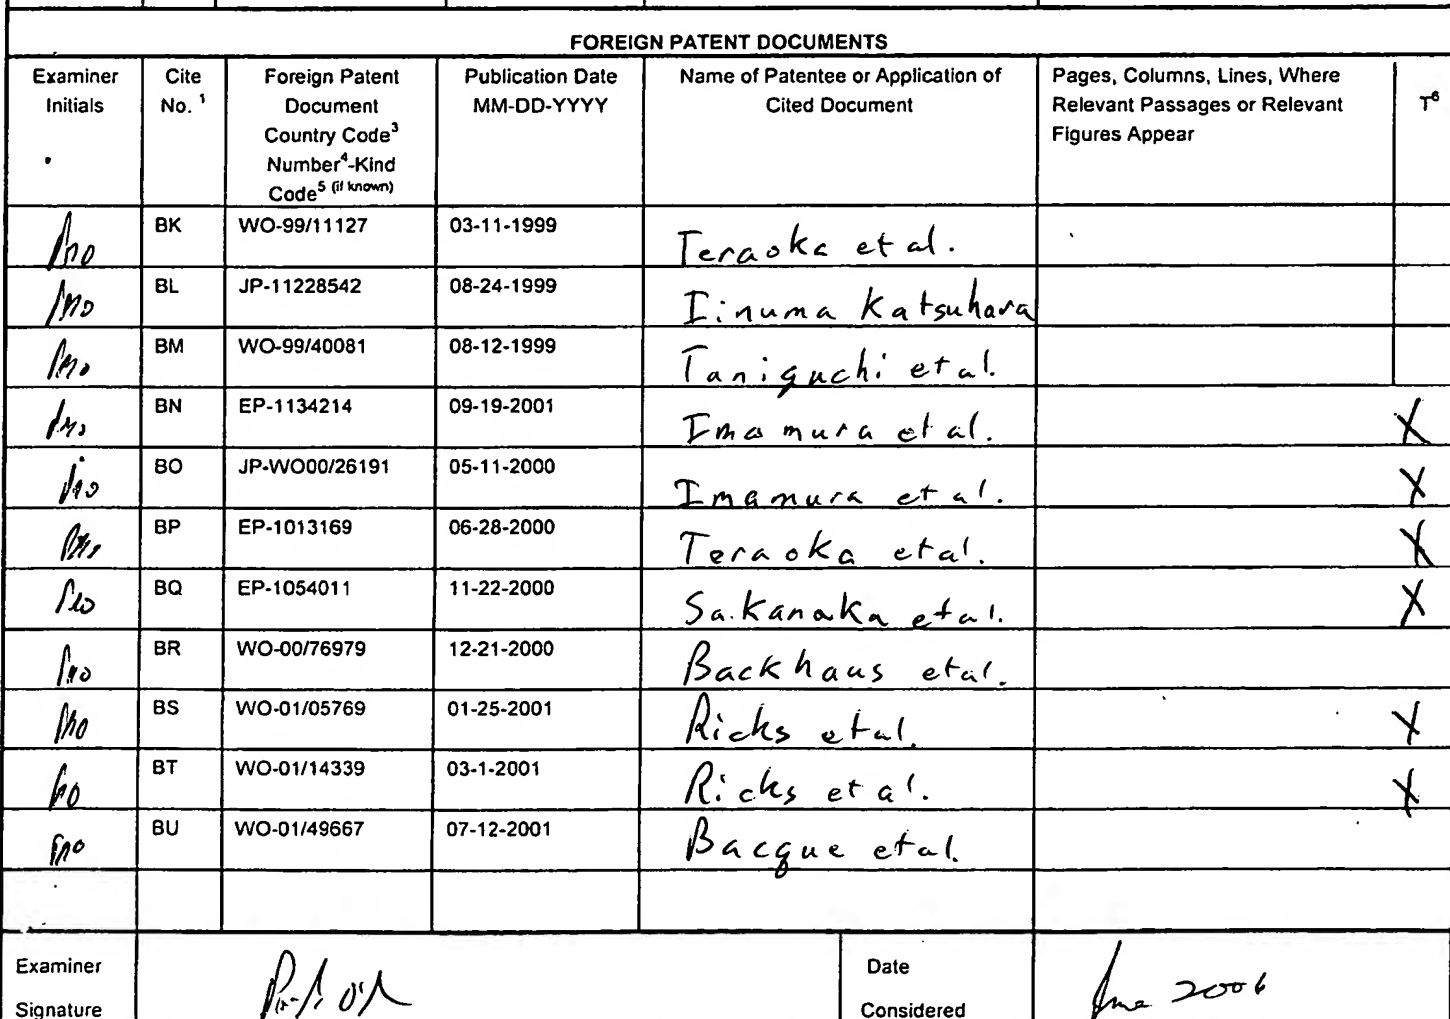 FOREIGN PATENT DOCUMENTS
Examiner Initials Cite No. 1 Foreign Patent Document Country Code3 Number4-Kind Code5 (if known) Publication Date MM-DD-YYYY Name of Patentee or Application of Cited Document Pages, Columns, Lines, Where Relevant Passages or Relevant Figures Appear T6
BK WO-99/11127 03-11-1999 Teraoka et al.
BL JP-11228542 08-24-1999 Iinuma Katsuhara
BM WO-99/40081 08-12-1999 Taniguchi et al.
BN EP-1134214 09-19-2001 Imamura et al. X
BO JP-WO00/26191 05-11-2000 Imamura et al. X
BP EP-1013169 06-28-2000 Teraoka et al. X
BQ EP-1054011 11-22-2000 Sakanaka et al. X
BR WO-00/76979 12-21-2000 Backhaus et al.
BS WO-01/05769 01-25-2001 Ricks et al. X
BT WO-01/14339 03-1-2001 Ricks et al. X
BU WO-01/49667 07-12-2001 Bacque et al.
Examiner Signature Date Considered June 2006